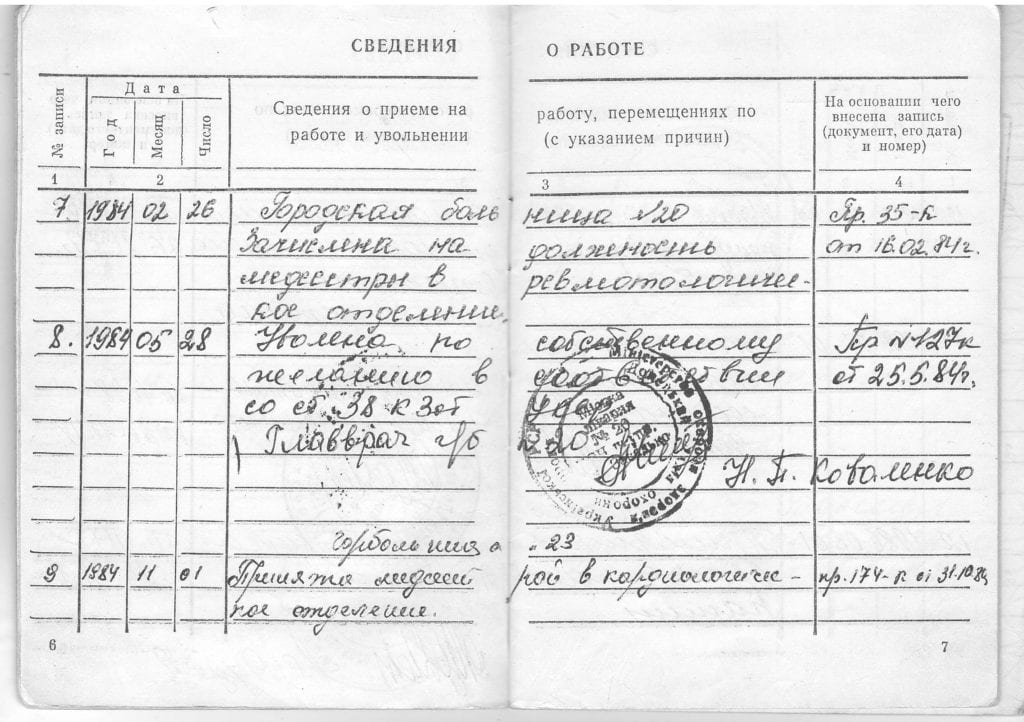 СВЕДЕНИЯ О РАБОТЕ
№ записи
Дата
Год
Месяц
Число
Сведения о приеме на работу, перемещениях по
работе и увольнении (с указанием причин)
На основании чего
внесена запись
(документ, его дата)
и номер)
1 2 3 4
7 1984 02 26 Городская больница №20 Пр. 35-к
Зачислена на должность от 16.02.84г.
медсестры в ревмотологичес-
кое отделение.
8. 1984 05 28 Уволена по собственному Пр №127к
желанию в соответствии от 25.5.84г.
со ст 38 кЗот
Главврач г/б №20 Н. П. Коваленко
Міністерство охорони здоров'я Української
Міська
лікарня
№ 20
горбольница №23
9 1984 11 01 Принята медсест рой в кардиологичес- пр. 174-к от 31.10.84
кое отделение.
6 7